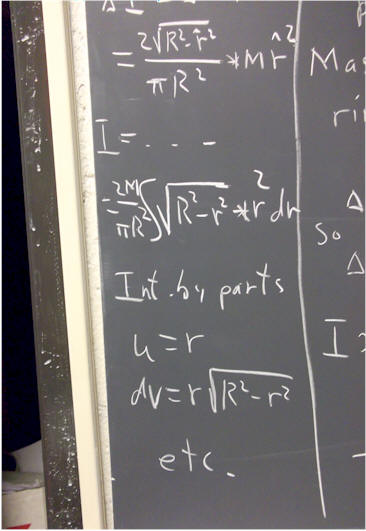 Δ I
= 2√R²-r² / πR² * Mr^2
I = . . . .
= 2M/πR² ∫√R²-r² * r² dr
Int. by parts
u = r
dv = r√R²-r²
etc.
Mas
rin
Δ
so
Δ
I =